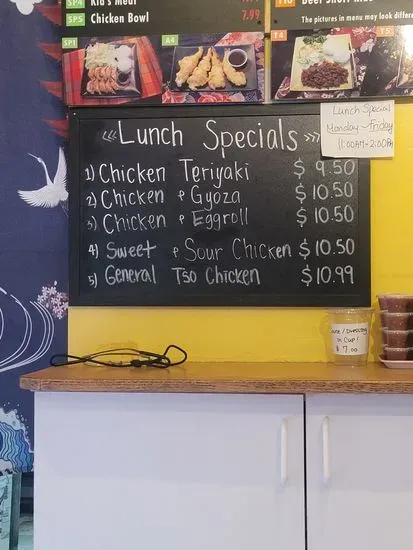 SP4 Kid's Meal
SP5 Chicken Bowl 7.99
The pictures in menu may look differe
SP1
A4
T4
T5
Lunch Specials
Lunch Special
Monday - Friday
11:00AM-2:00PM
1) Chicken Teriyaki $ 9.50
2) Chicken & Gyoza $ 10.50
3) Chicken & Eggroll $ 10.50
4) Sweet & Sour Chicken $ 10.50
5) General Tso Chicken $ 10.99
in Cup!
$ 7.00